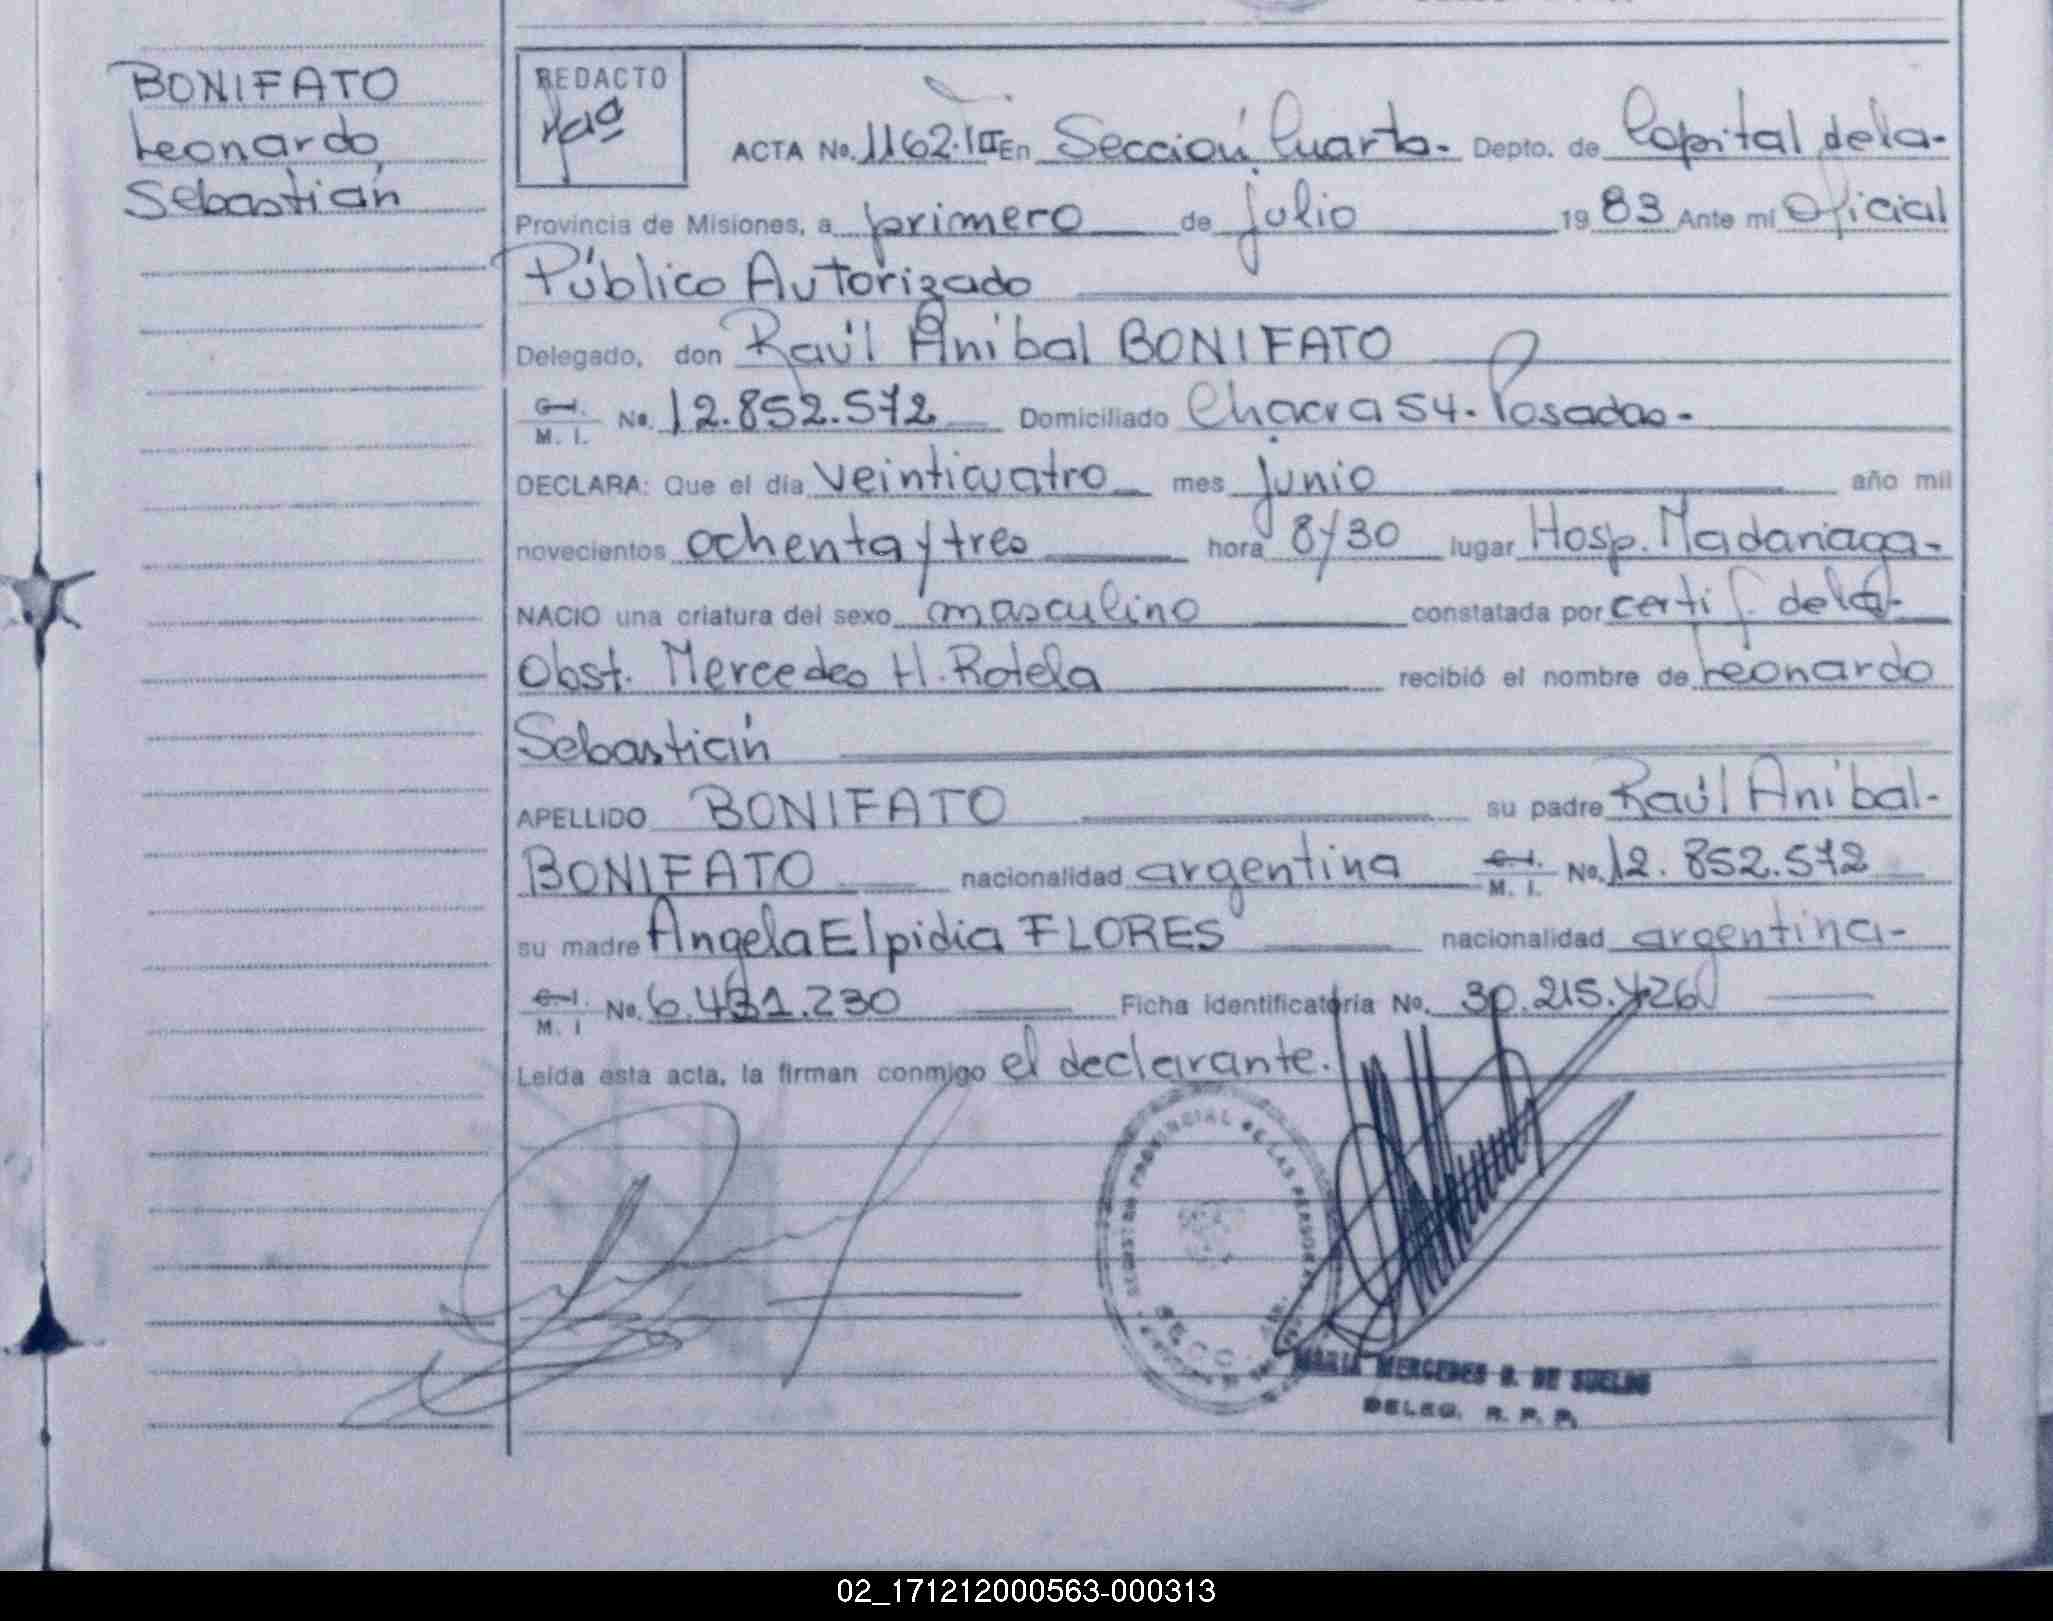 BONIFATO
Leonardo
Sebastián
REDACTO
ACTA No. 1162.III En Sección Cuarta. Depto. de Capital de la-
Provincia de Misiones, a primero de julio 1983 Ante mí Oficial
Público Autorizado
Delegado, don Raúl Aníbal BONIFATO
C.I.
M. I. No. 12.852.572 Domiciliado Chacra 54. Posadas-
DECLARA: Que el día veinticuatro mes junio año mil
novecientos ochenta y tres hora 8y30 lugar Hosp. Madariaga-
NACIO una criatura del sexo masculino constatada por certif. de la
Obst. Mercedes H. Rotela recibió el nombre de Leonardo
Sebastián
APELLIDO BONIFATO su padre Raúl Aníbal-
BONIFATO nacionalidad argentina C.I.
M. I. No. 12.852.572
su madre Angela Elpidia FLORES nacionalidad argentina-
C.I.
M. I No. 6.431.230 Ficha identificatoria No. 30.215.426
Leída esta acta, la firman conmigo el declarante.
REGISTRO PROVINCIAL DE LAS PERSONAS
SECC.
MARIA MERCEDES S. DE SUELDO
DELEG. R. P. P.
02_171212000563-000313